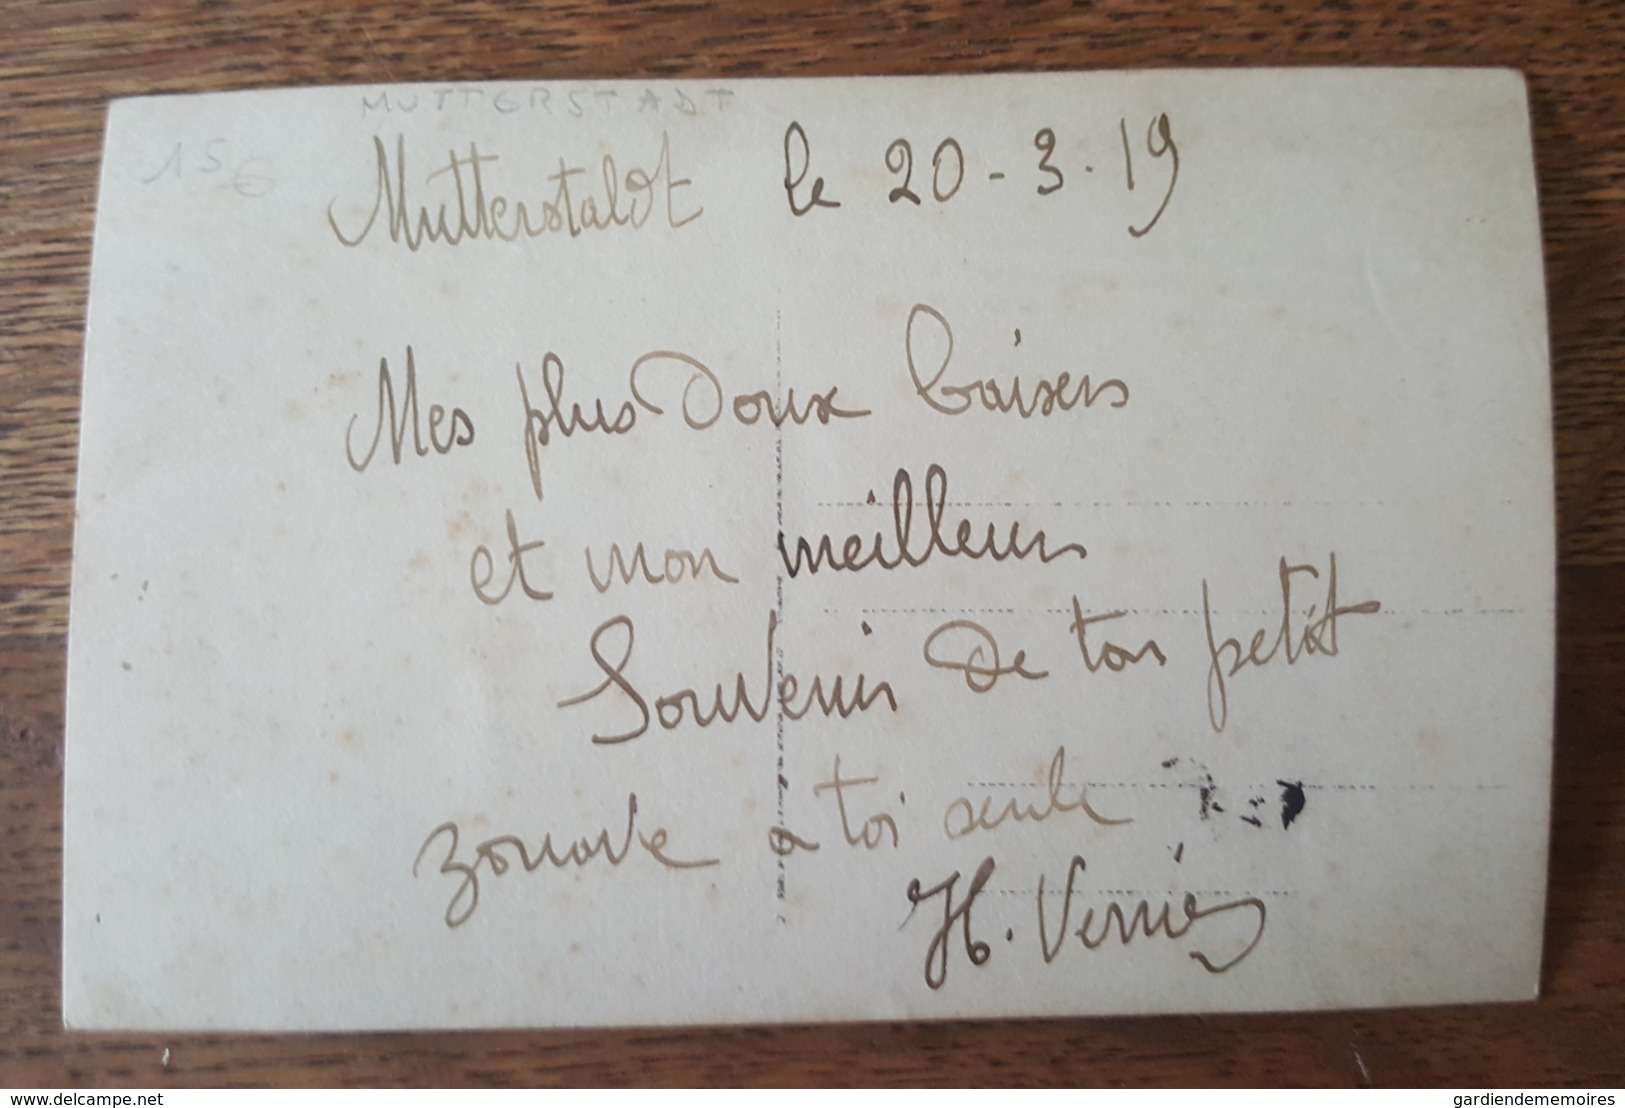 MUTTERSTADT
15€
Mutterstaldt le 20-3-19
Mes plus doux baisers
et mon meilleur
Souvenir de ton petit
zouave a toi seule
H. Verriés
www.delcampe.net
gardiendememoires